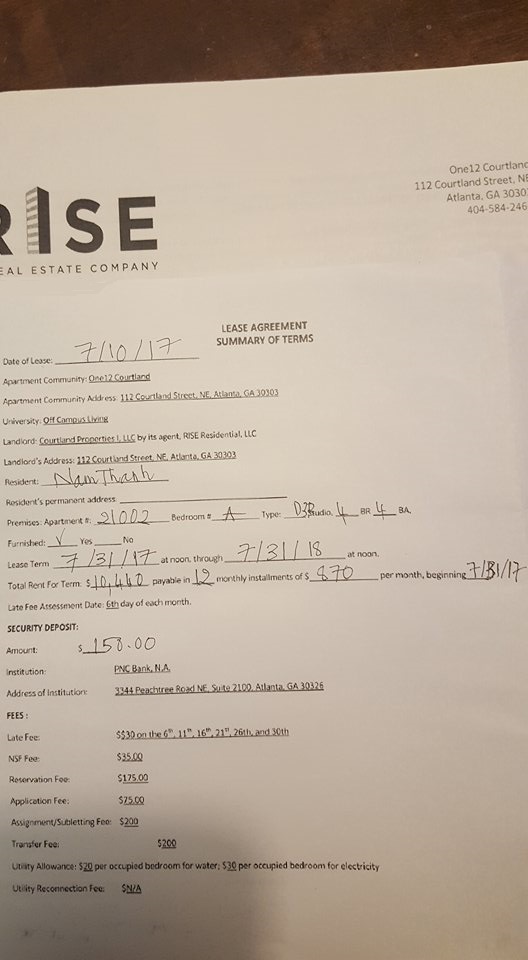 RISE
EAL ESTATE COMPANY
One12 Courtland
112 Courtland Street, NE
Atlanta, GA 3030
404-584-246
LEASE AGREEMENT
SUMMARY OF TERMS
Date of Lease: 7/10/17
Apartment Community: One12 Courtland
Apartment Community Address: 112 Courtland Street, NE, Atlanta, GA 30303
University: Off Campus Living
Landlord: Courtland Properties I, LLC by its agent, RISE Residential, LLC
Landlord's Address: 112 Courtland Street, NE, Atlanta, GA 30303
Resident: Nam Thanh
Resident's permanent address
Premises: Apartment #: 21002 Bedroom # A Type: Studio, 4 BR 4 BA.
Furnished: V Yes No
Lease Term 7/31/17 at noon, through 7/31/18 at noon.
Total Rent For Term: $10,440 payable in 12 monthly installments of $ 870 per month, beginning 7/31/17
Late Fee Assessment Date: 6th day of each month.
SECURITY DEPOSIT:
Amount: $ 150.00
Institution: PNC Bank, N.A.
Address of Institution: 3344 Peachtree Road NE, Suite 2100, Atlanta, GA 30326
FEES :
Late Fee: $$30 on the 6th, 11th, 16th, 21st, 26th, and 30th
NSF Fee: $35.00
Reservation Fee: $175.00
Application Fee: $75.00
Assignment/Subletting Fee: $200
Transfer Fee: $200
Utility Allowance: $20 per occupied bedroom for water; $30 per occupied bedroom for electricity
Utility Reconnection Fee: $N/A